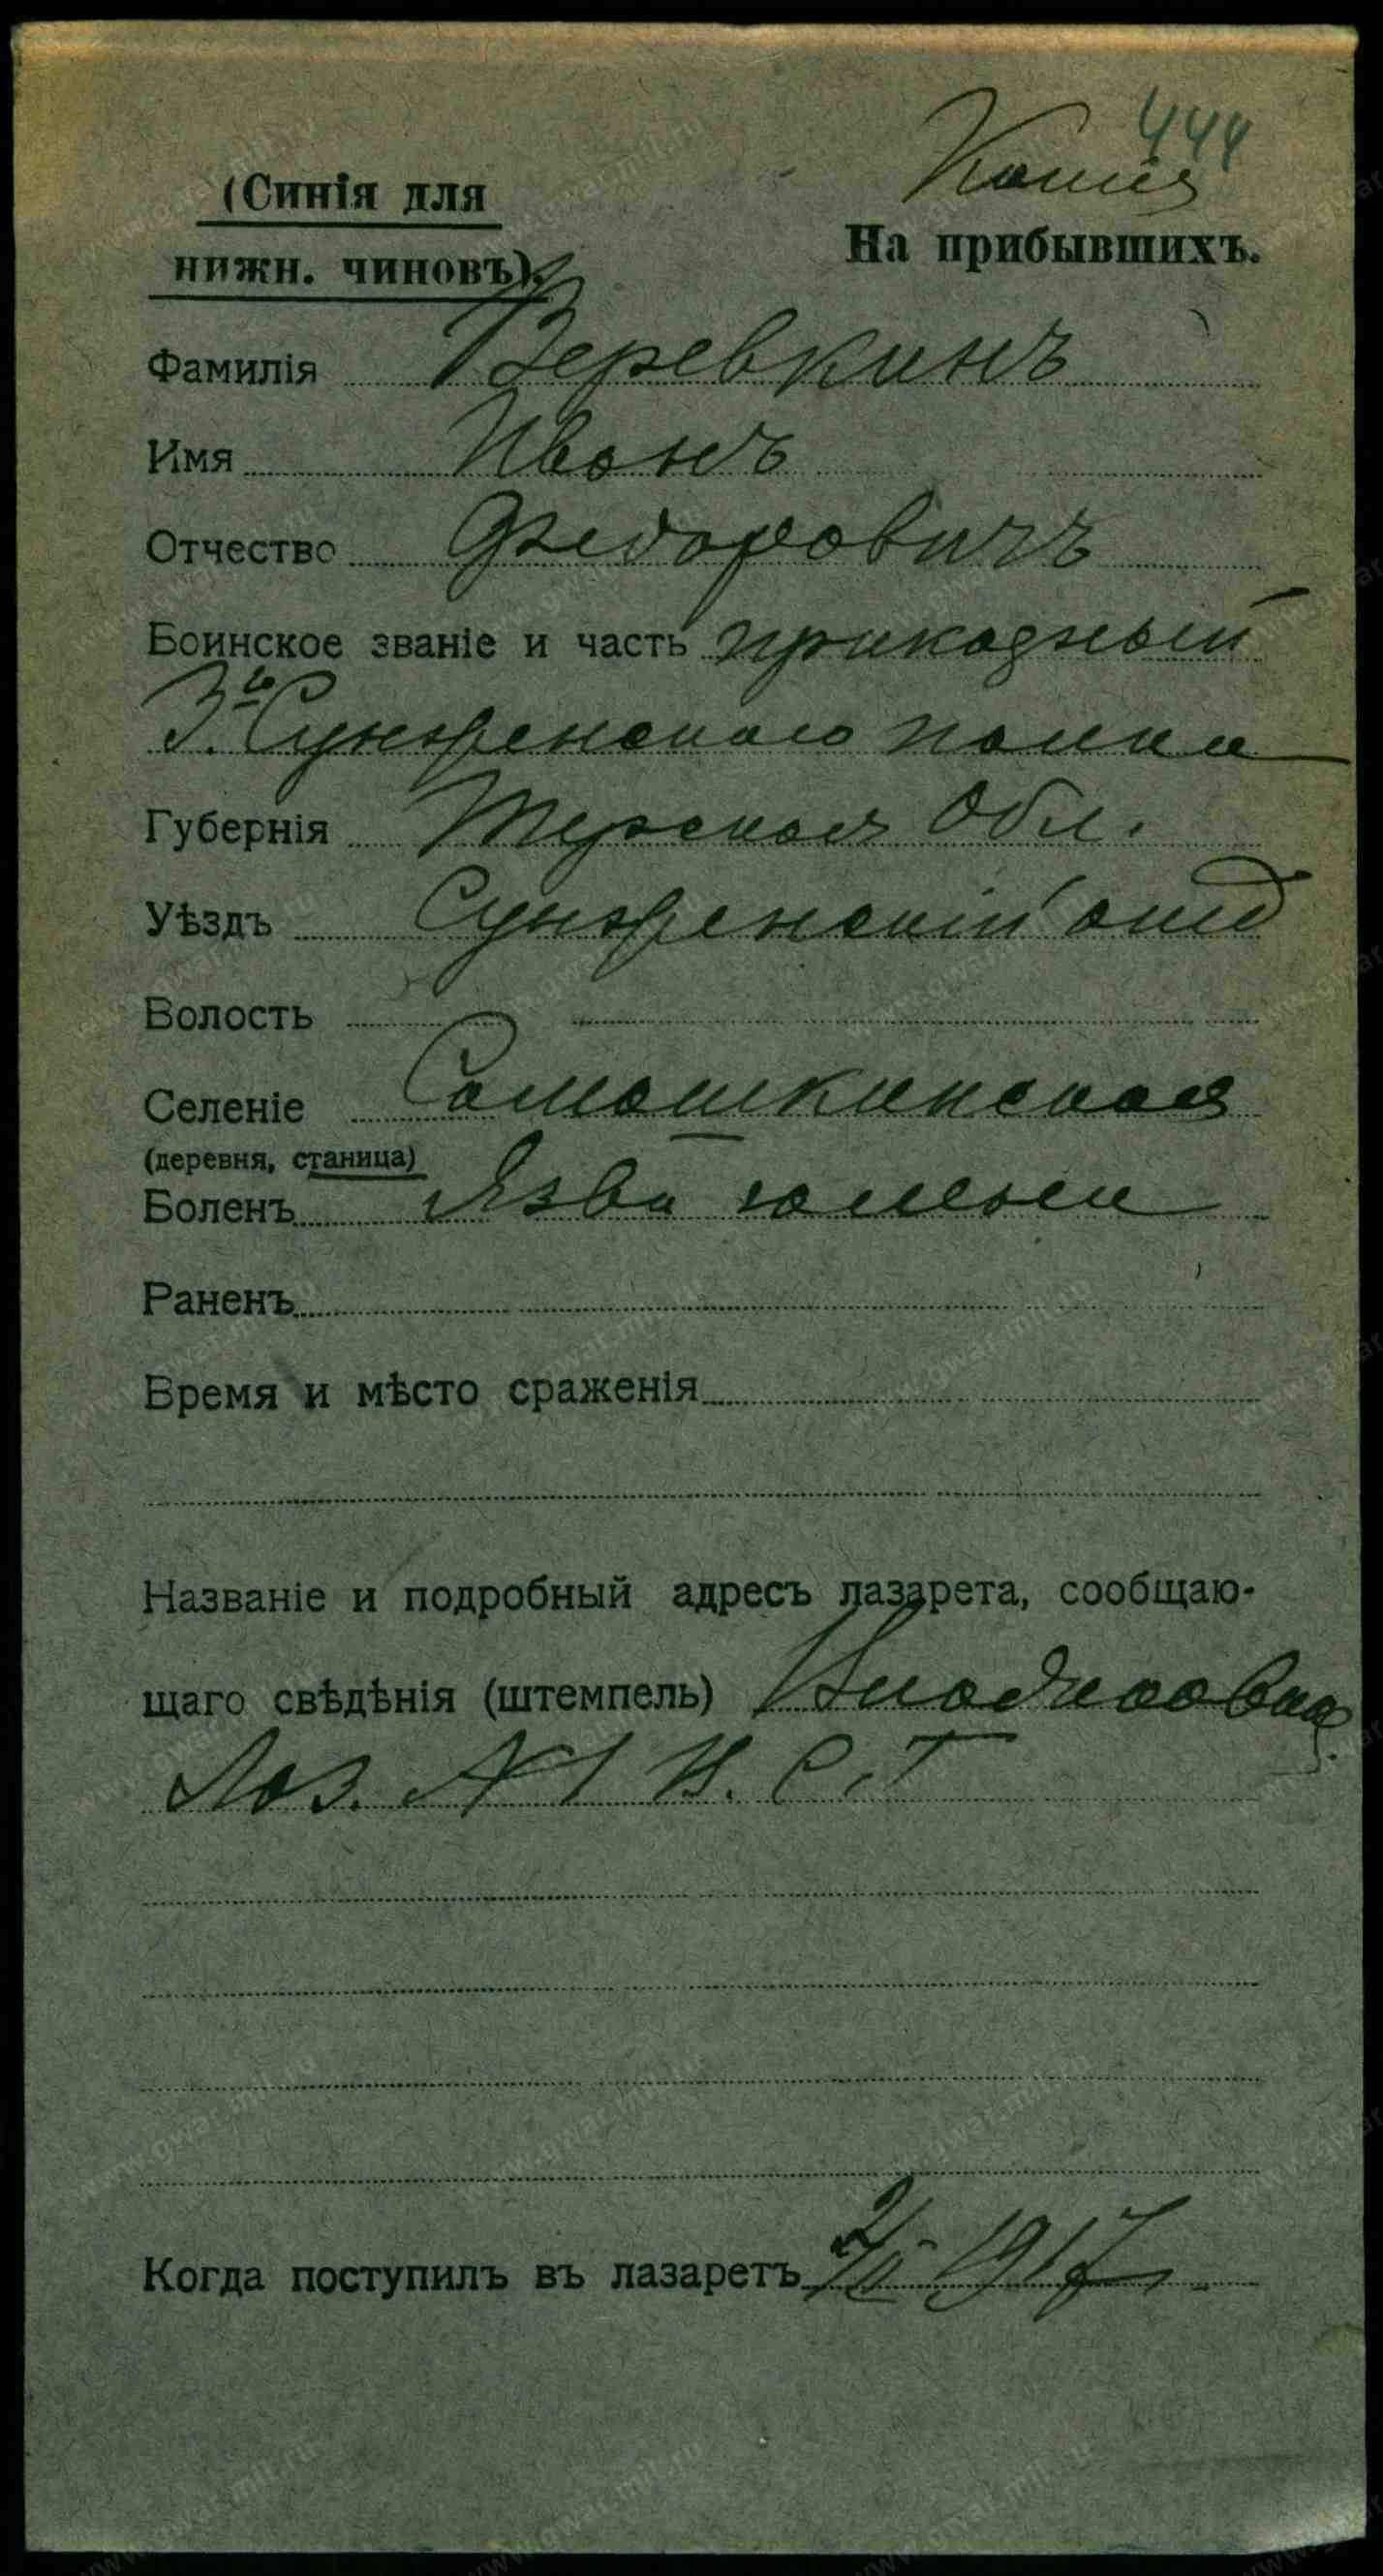 444
Копия
(Синія для
нижн. чиновъ).
На прибывшихъ.
Фамилія Веревкинъ
Имя Иванъ
Отчество Федоровичъ
Воинское званіе и часть приказный
3го Сунженского полка
Губернія Терская Обл.
Уѣздъ Сунженскій отд
Волость
Селеніе Самашкинская
(деревня, станица)
Боленъ Язва голени
Раненъ
Время и мѣсто сраженія
Названіе и подробный адресъ лазарета, сообщаю-
щаго свѣдѣнія (штемпель) Кисловод.
Лаз. №1 К. С. Г
Когда поступилъ въ лазаретъ 1917 г.